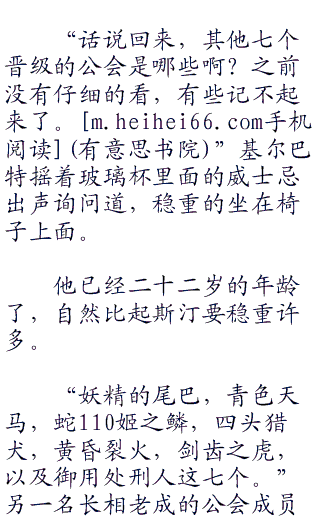 “话说回来，其他七个
晋级的公会是哪些啊？之前
没有仔细的看，有些记不起
来了。[m.heihei66.com手机
阅读](有意思书院)”基尔巴
特摇着玻璃杯里面的威士忌
出声询问道，稳重的坐在椅
子上面。
他已经二十二岁的年龄
了，自然比起斯汀要稳重许
多。
“妖精的尾巴，青色天
马，蛇110姬之鳞，四头猎
犬，黄昏裂火，剑齿之虎，
以及御用处刑人这七个。”
另一名长相老成的公会成员